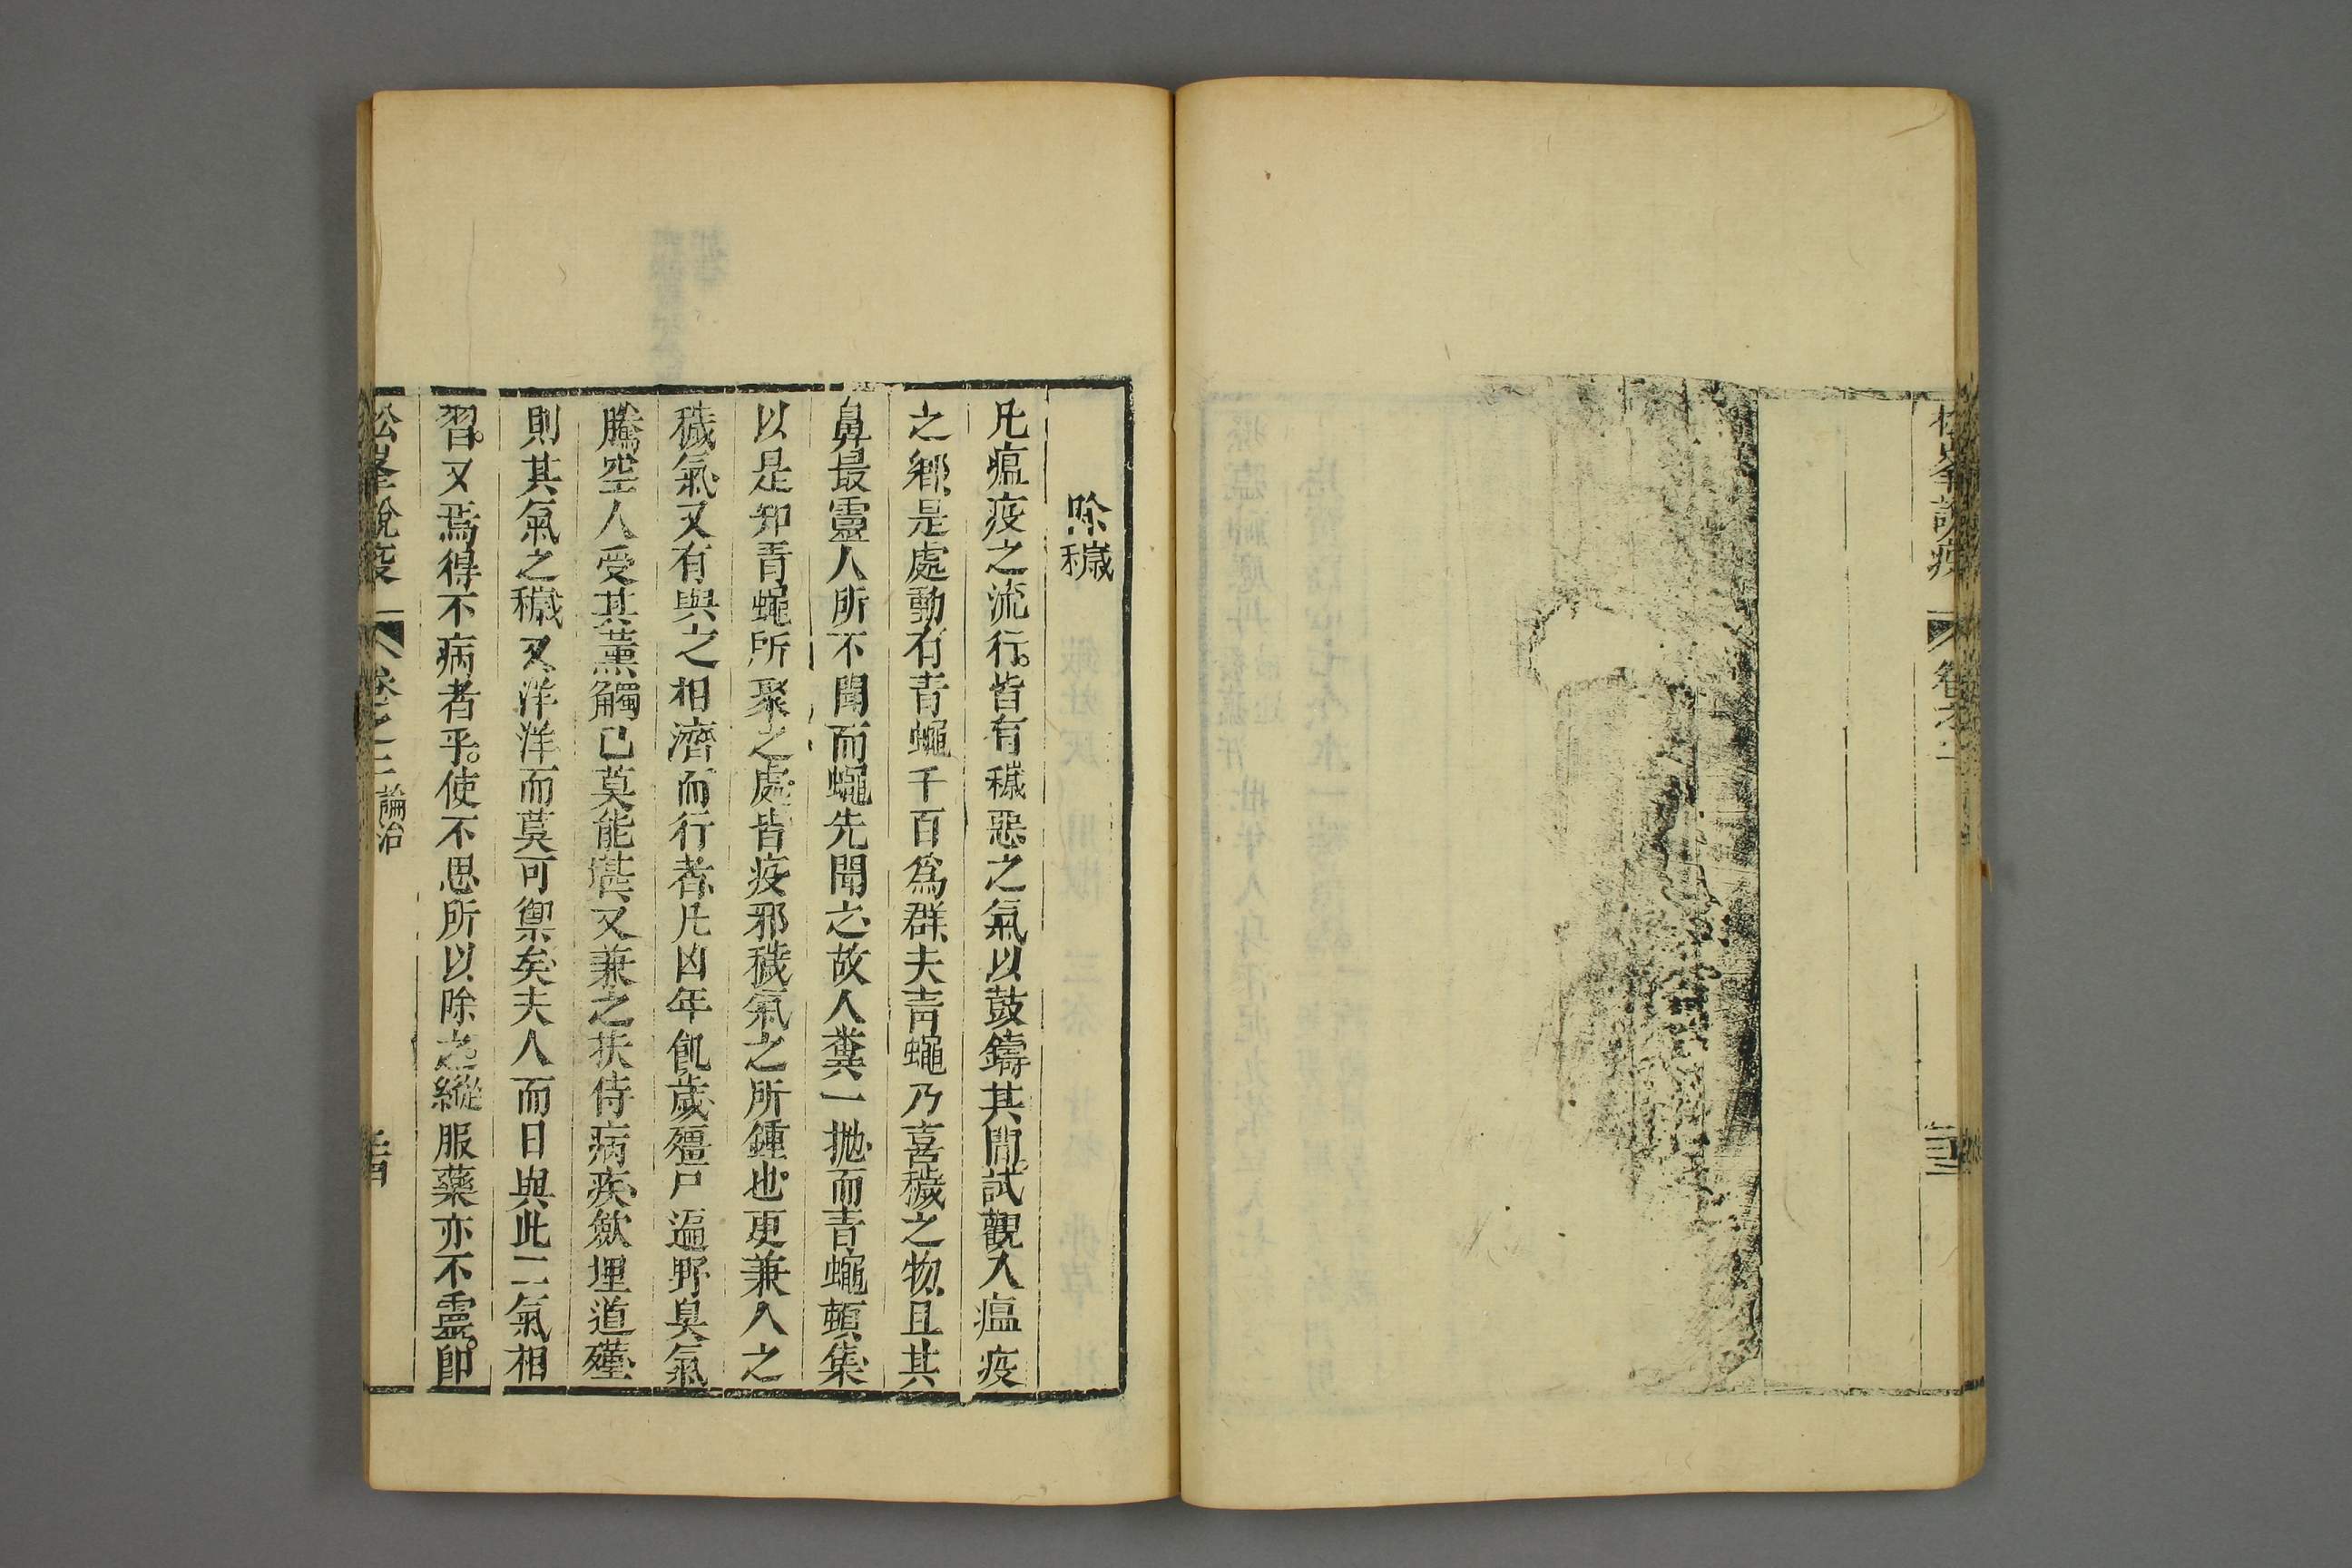 松峯說疫
卷之二
除穢
凡瘟疫之流行。皆有穢惡之氣以鼓鑄其間。試觀入瘟疫
之鄉、是處動有青蠅千百爲群、夫青蠅乃喜穢之物、且其
鼻最靈人所不聞而蠅先聞之、故人糞一拋、而青蠅頓集、
以是知青蠅所聚之處、皆疫邪穢氣之所鍾也、更兼人之
穢氣、又有與之相濟而行者、凡凶年飢歲殭尸遍野臭氣
騰空、人受其薰觸已莫能堪、又兼之扶侍病疾、歛埋道殣、
則其氣之穢、又洋洋而莫可禦矣、夫人而日與此二氣相
習。又焉得不病者乎。使不思所以除之、縱服藥亦不靈。即
松峯說疫
卷之二
論治